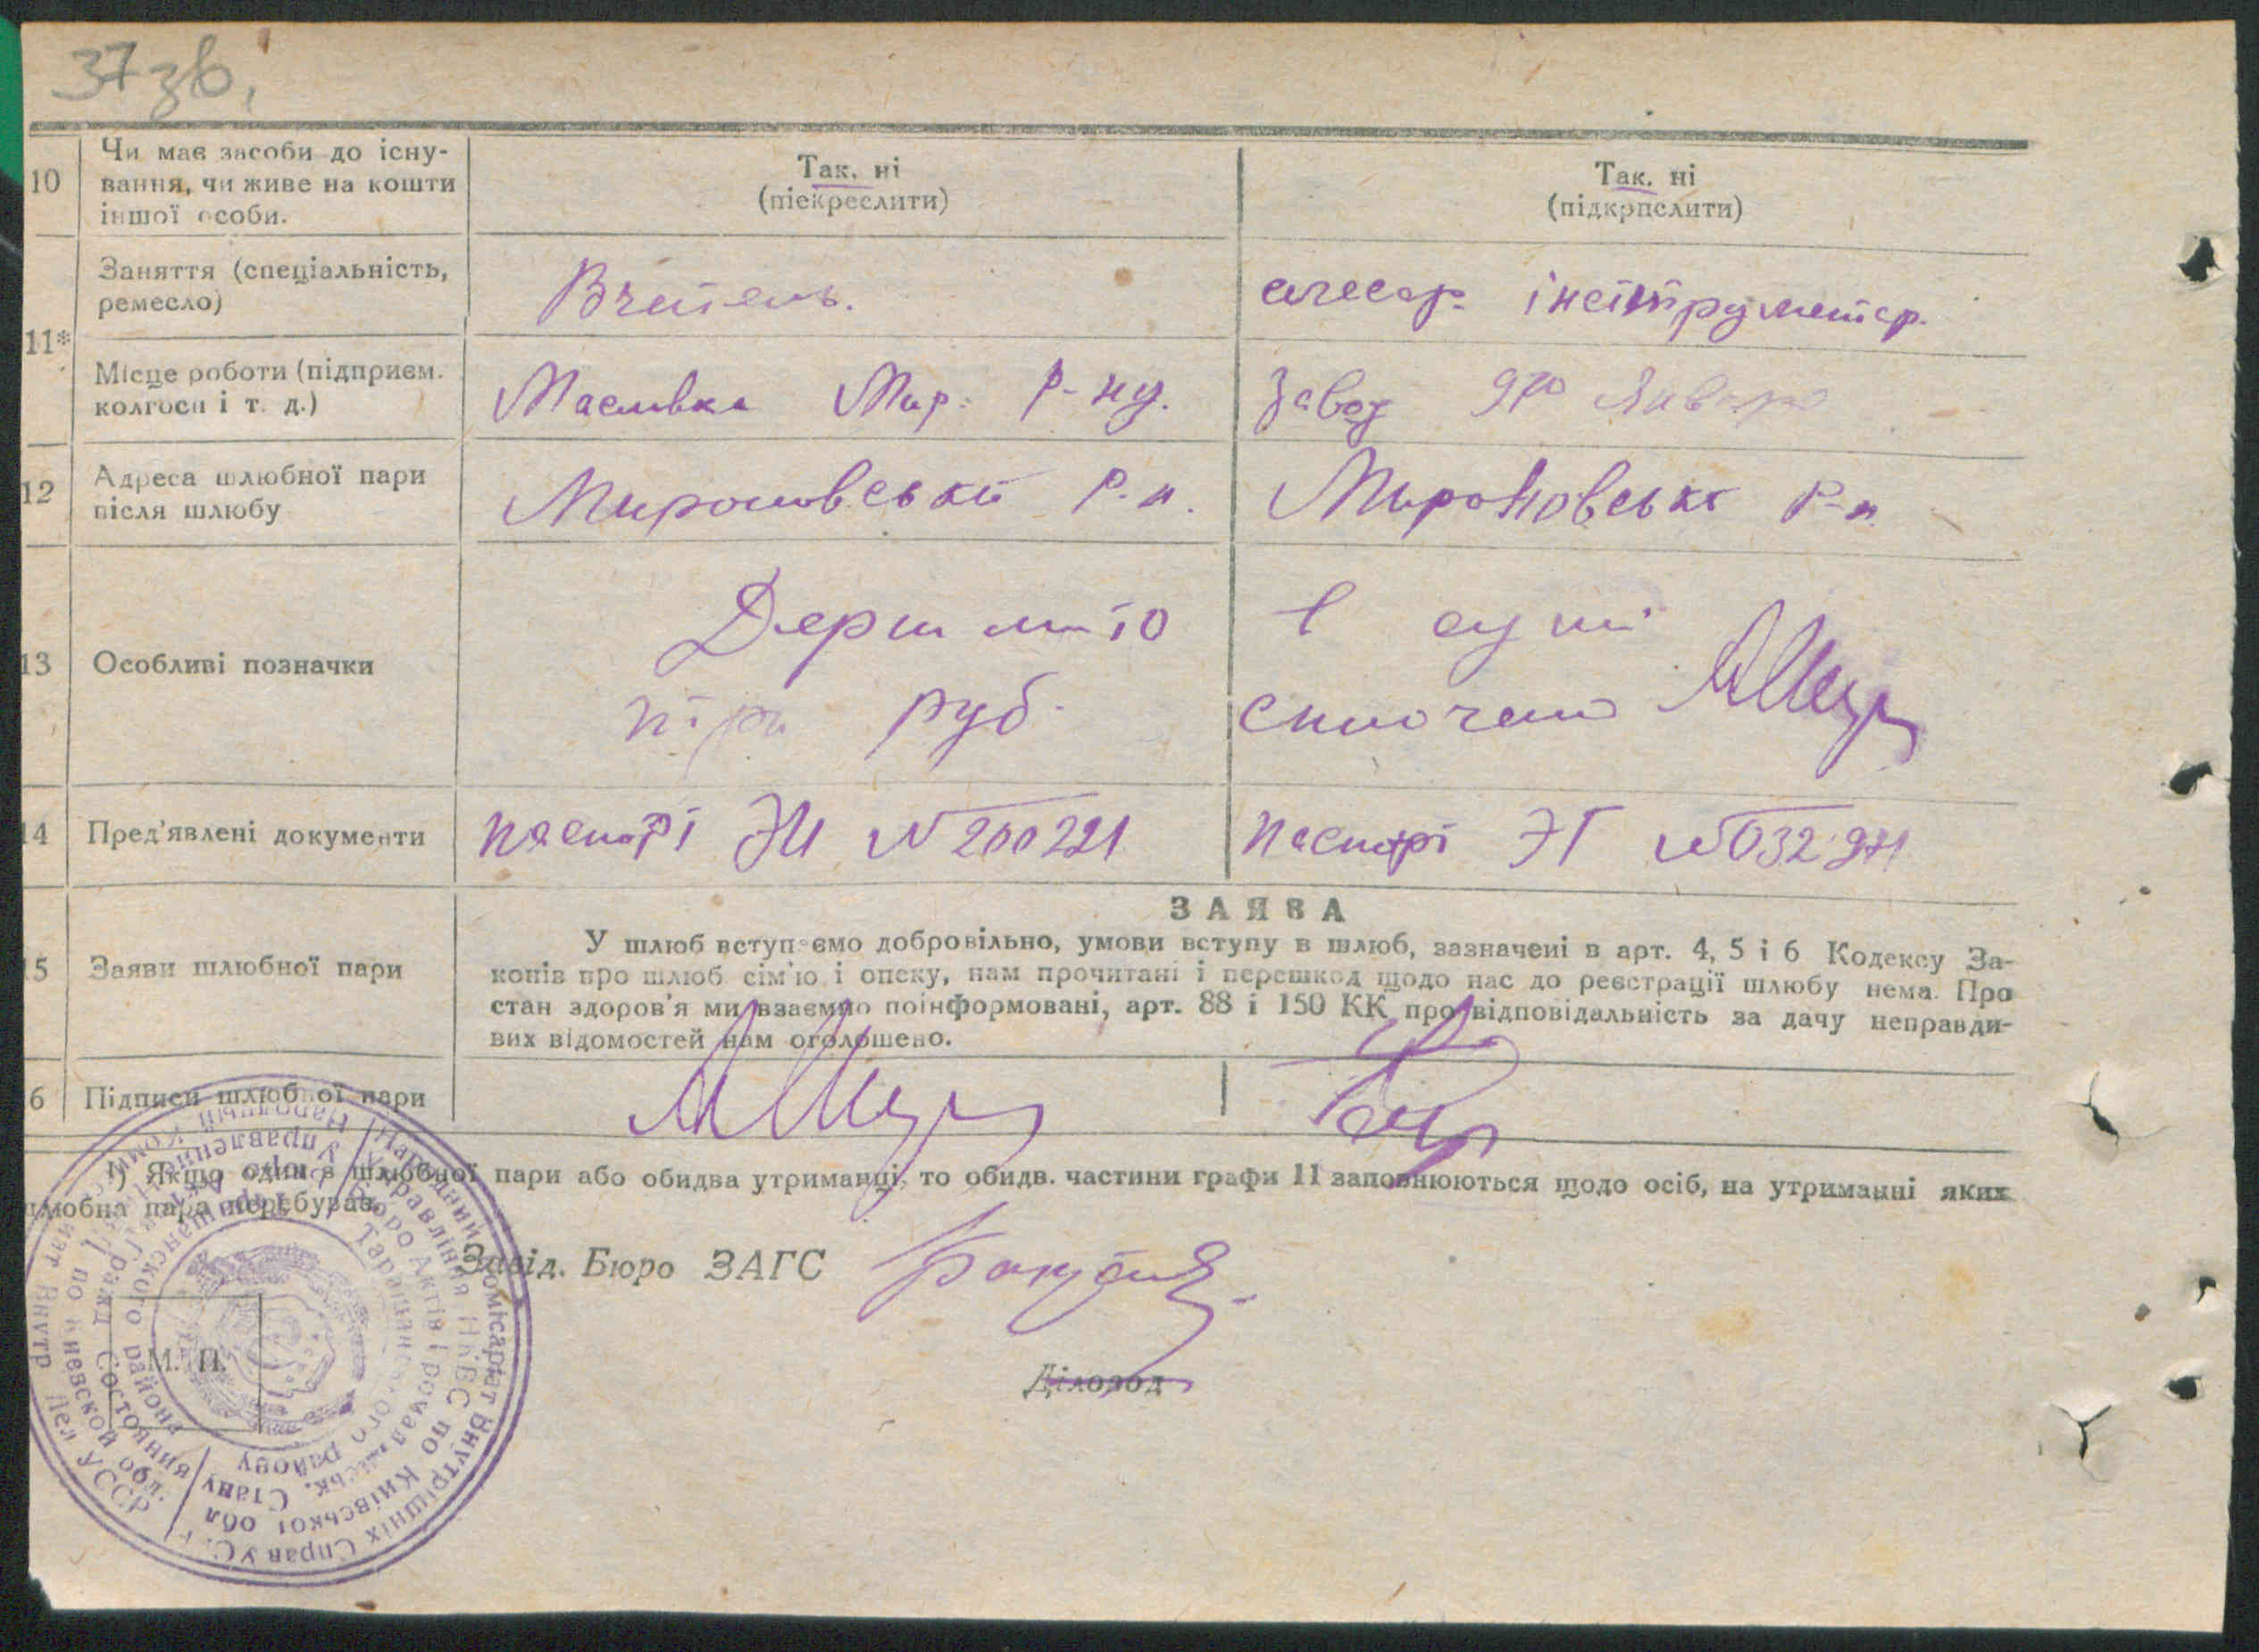 37 зв.
10 Чи має засоби до існу-
вання, чи живе на кошти
іншої особи.
Так. ні
(піекреслити)
Так. ні
(підкрпслити)
11*
Заняття (спеціальність,
ремесло)
Вчитель.
слесар інструментар.
Місце роботи (підприєм.
колгосп і т. д.)
Маслівка Мир. р-ну.
Завод 9го Января
12 Адреса шлюбної пари
після шлюбу
Мироновський р-н.
Мироновськ р-н
13 Особливі позначки
Держ мито в сумі
три руб. сплочено
14 Пред'явлені документи
паспорт № 200221
паспорт ЭГ № 032971
ЗАЯВА
15 Заяви шлюбної пари
У шлюб вступаємо добровільно, умови вступу в шлюб, зазначені в арт. 4, 5 і 6 Кодексу За-
конів про шлюб сім'ю і опеку, нам прочитані і перешкод щодо нас до реєстрації шлюбу нема. Про
стан здоров'я ми взаємно поінформовані, арт. 88 і 150 КК про відповідальність за дачу неправди-
вих відомостей нам оголошено.
16 Підписи шлюбної пари
¹) Якщо один з шлюбної пари або обидва утриманці, то обидв. частини графи 11 заповнюються щодо осіб, на утриманні яких
шлюбна пара перебуває.
Завід. Бюро ЗАГС
Діловод
М. П.
Народний Комісаріат Внутрішніх Справ УС
Управління НКВС по Київської обл
Бюро Актів Громадянськ. Стану
Таращанського району
Внутр Дел УССР
по Киевской обл.
Гражд Состояния
района